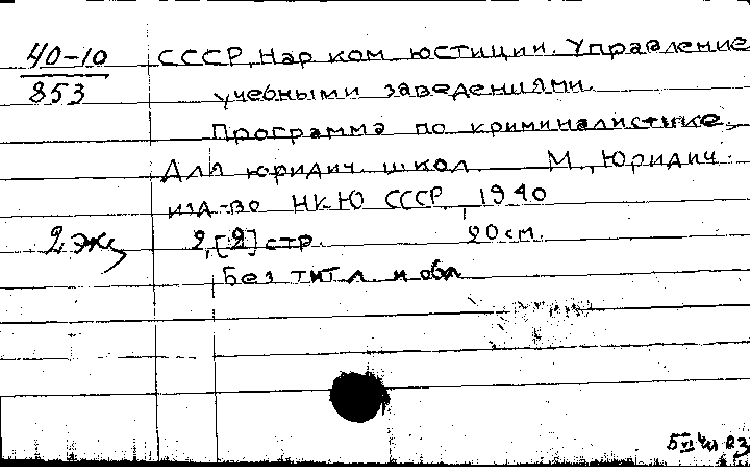 40-10
853
СССР, Нар ком юстиции. Управление
учебными заведениями.
Программа по криминалистике.
Для юридич. школ. М., Юридич.
изд-во НКЮ СССР, 1940
2 экз
2, [2] стр. 20 см.
Без тит л. и обл